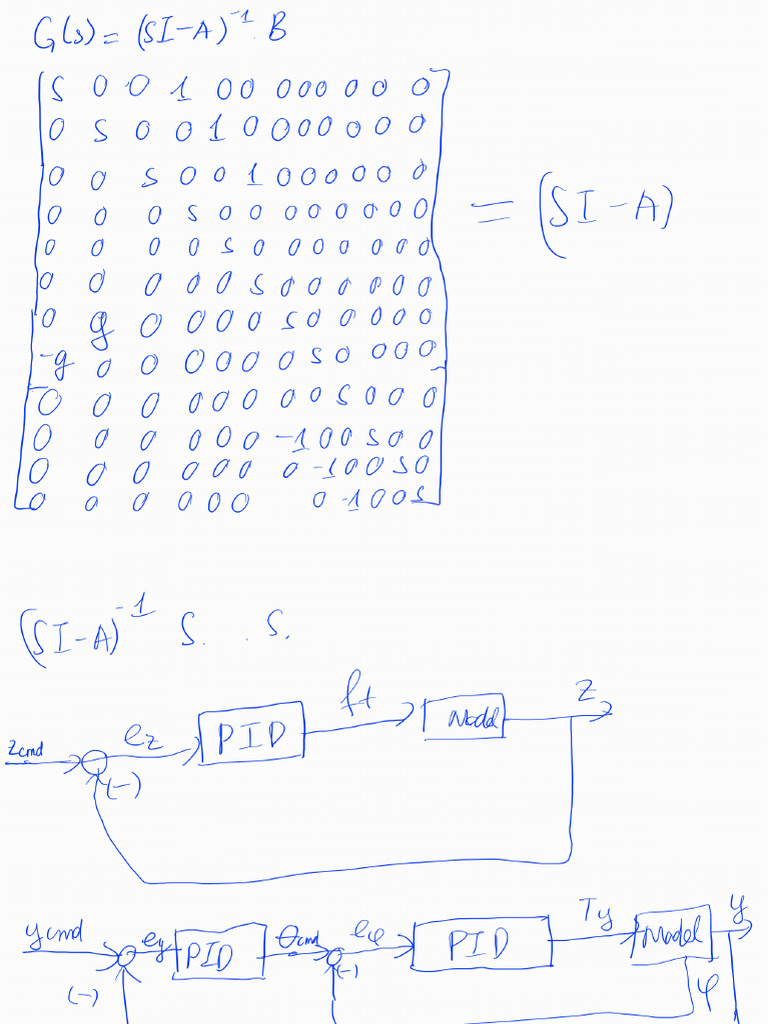 G(s) = (SI-A)^-1 . B
S 0 0 1 0 0 0 0 0 0 0 0
0 S 0 0 1 0 0 0 0 0 0 0
0 0 S 0 0 1 0 0 0 0 0 0
0 0 0 S 0 0 0 0 0 0 0 0
0 0 0 0 S 0 0 0 0 0 0 0
0 0 0 0 0 S 0 0 0 0 0 0
0 g 0 0 0 0 S 0 0 0 0 0
-g 0 0 0 0 0 0 S 0 0 0 0
0 0 0 0 0 0 0 0 S 0 0 0
0 0 0 0 0 0 -1 0 0 S 0 0
0 0 0 0 0 0 0 -1 0 0 S 0
0 0 0 0 0 0 0 -1 0 0 S
= (SI-A)
(SI-A)^-1 S. . S.
zcmd ez PID ft Model z
(-)
ycmd ey PID θcmd eφ PID Ty Model y
(-) (-) φ